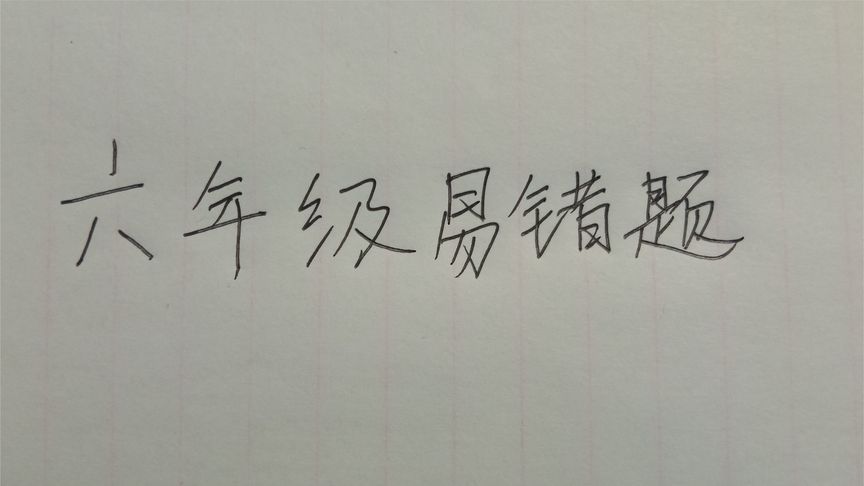 六年级易错题